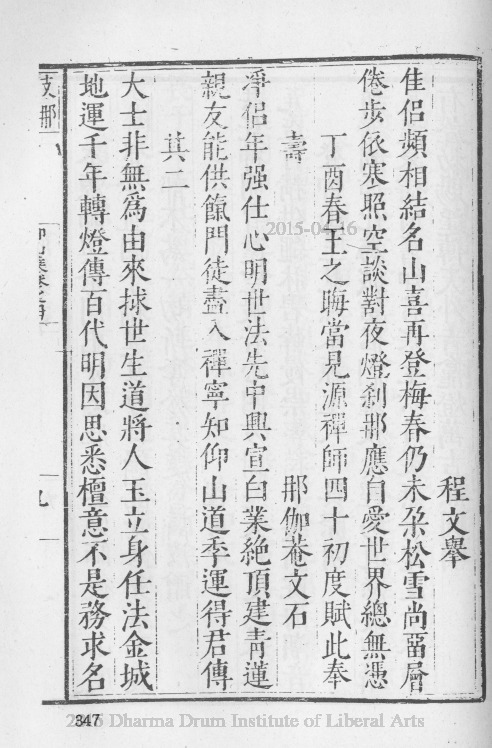 程文舉
佳侶頻相結名山喜再登梅春仍未朶松雪尚畱層
倦步依寒照空談對夜燈刹那應自愛世界總無憑
丁酉春王之晦當見源禪師四十初度賦此奉
壽　那伽菴文石
淨侶年强仕心明世法先中興宣白業絶頂建靑蓮
親友能供餼門徒盡入禪寧知仰山道季運得君傳
其二
大士非無爲由來捄世生道將人玉立身任法金城
地運千年轉燈傳百代明因思悉檀意不是務求名
支那
九
2015-04-16
347
Dharma Drum Institute of Liberal Arts